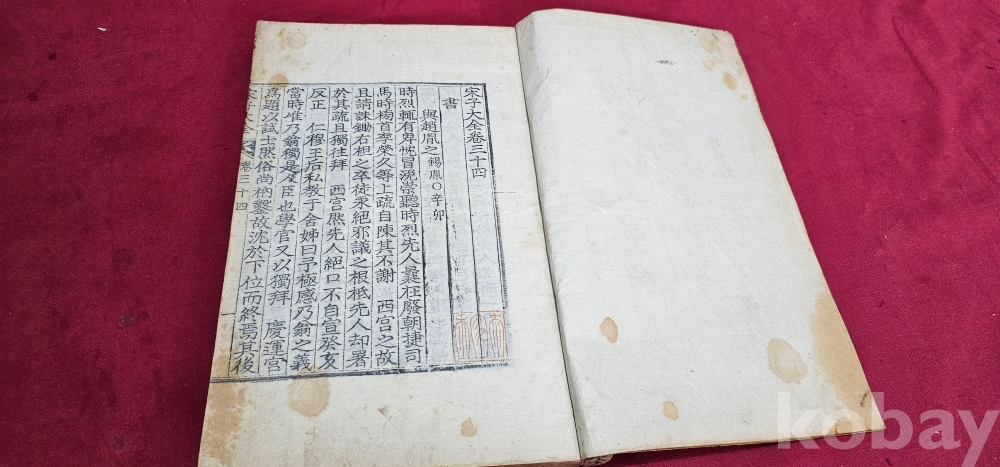 宋子大全卷三十四
書
與趙胤之 錫胤○辛卯
時烈輒有卑悗冒浼崇聽時烈先人曩在廢朝捷司
馬時榜首李榮久等上疏自陳其不謝 西宮之故
且請誅鋤右袒之卒徒永絕邪議之根柢先人却署
於其疏且獨往拜 西宮然先人絕口不自宣癸亥
反正 仁穆王后私教于舍姊曰予極感乃翁之義
當時唯乃翁獨是臣也學官又以獨拜 慶運宮
爲題以試士然俗尚枘鑿故沈於下位而終焉其後
宋子大全 卷三十四
kobay